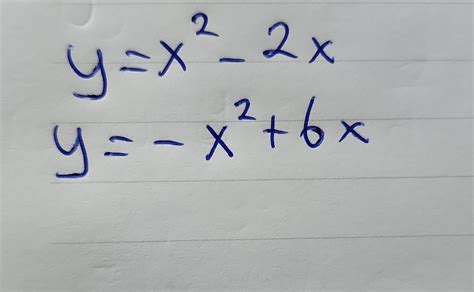 y=x²-2x
y=-x²+6x